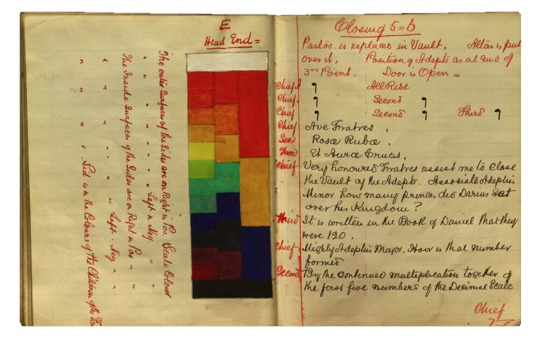 E
Head End =
The outer Surface of the Sides are on Right in Pos Scale Colour
" " " " " " Left in Neg "
The Inside Surfaces of the Sides are on Right in Pos "
" " " " " Left " Neg "
" Lid is in the Colours of the Ceiling of the
Closing 5=6
Pastos is replaced in Vault. Altar is put
over it. Position of Adepti as at end of
3rd Point. Door is Open =
Chief ๅ All Rise
Chief. ๅ Second ๅ
Chief ๅ Second ๅ Third ๅ
Chief Ave Fratres.
Sec Rosæ Rubæ.
Third Et Aureæ Crucis.
Chief Very honoured Fratres assist me to Close
the Vault of the Adepti. Associate Adeptus
Minor how many princes did Darius Set
over his Kingdom?
Third It is written in the Book of Daniel that they
were 120.
Chief Mighty Adeptus Major. How is that number
formed
Second By the continued multiplication together of
the first five numbers of the Decimal Scale
Chief